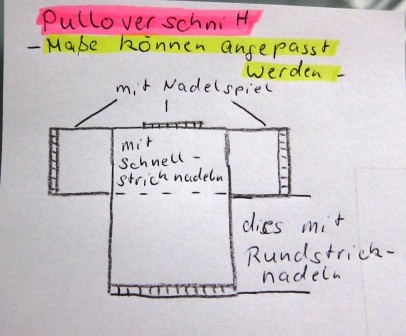 Pulloverschnitt
- Maße können angepasst
werden -
mit Nadelspiel
mit
Schnell-
stricknadeln
dies mit
Rundstrick-
nadeln